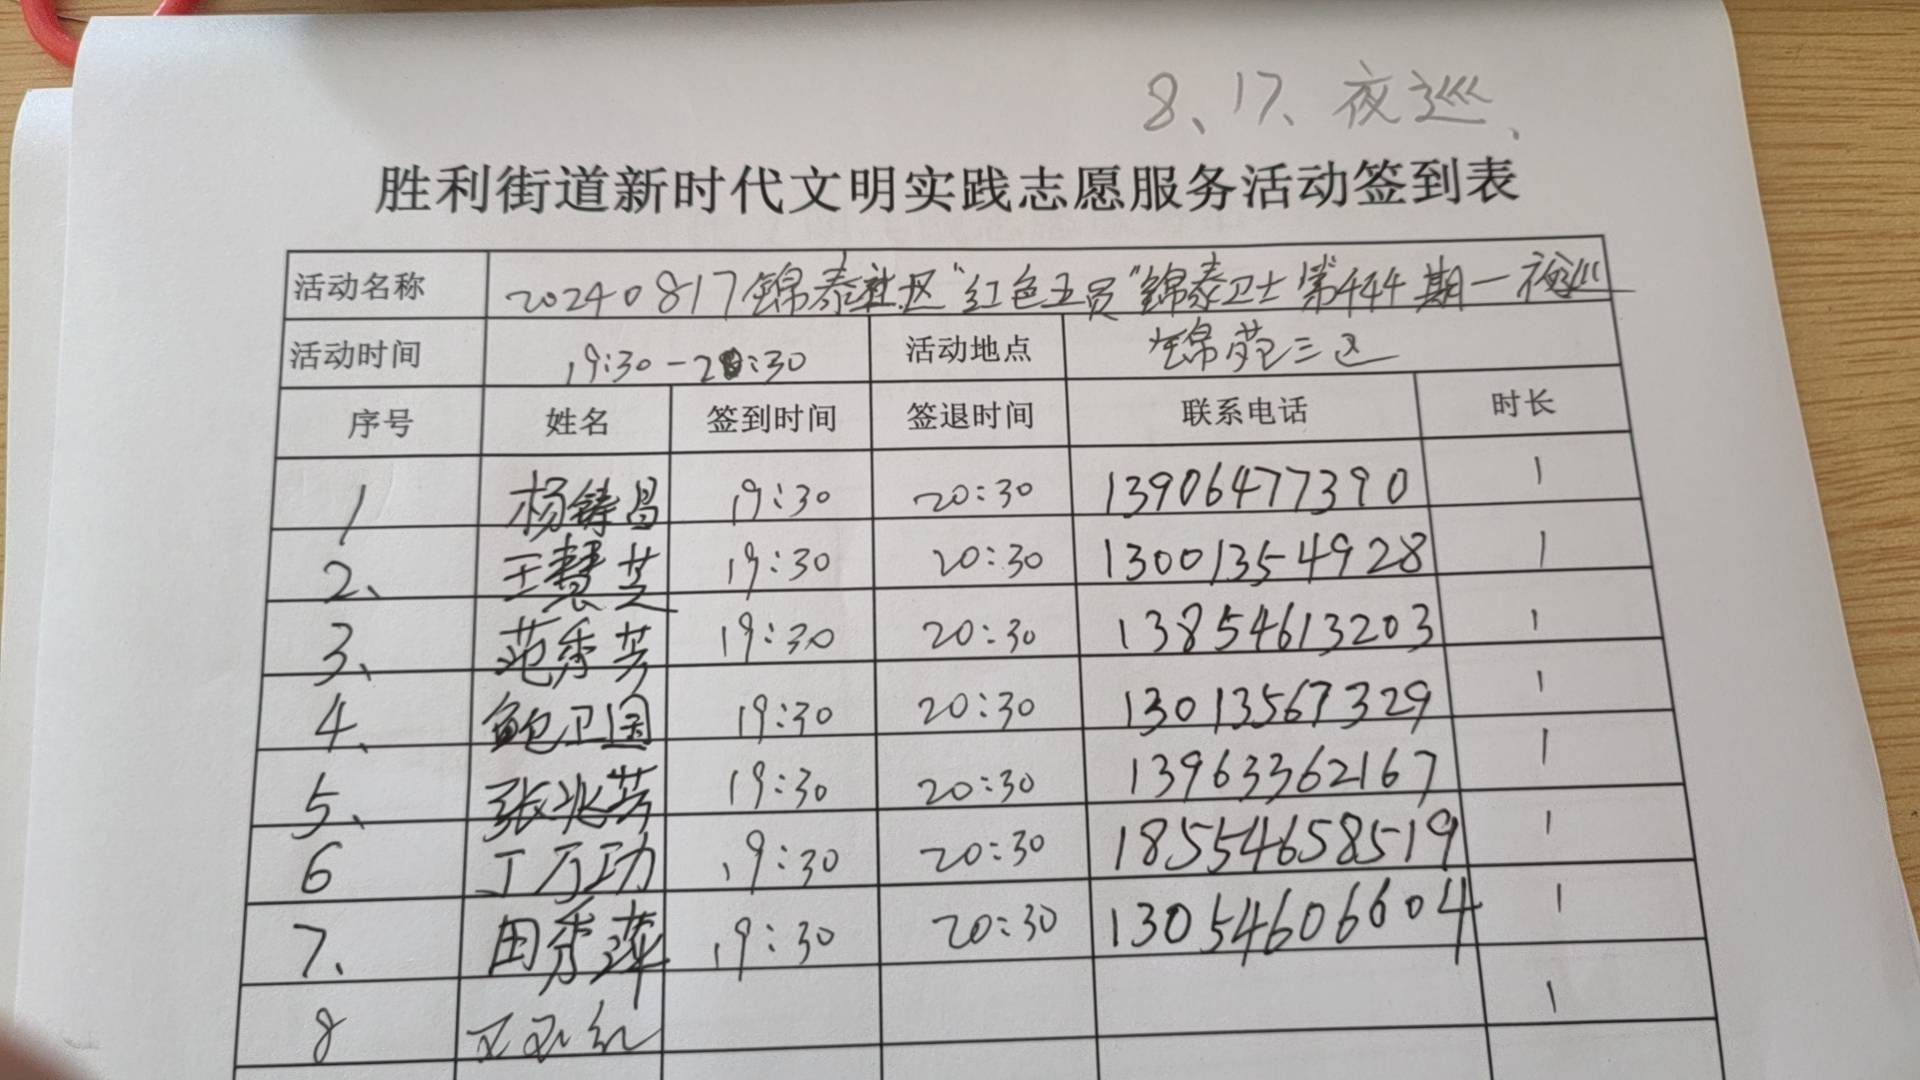 8、17、夜巡、
胜利街道新时代文明实践志愿服务活动签到表
活动名称 20240817锦泰社区“红色五员”锦泰卫士第444期一夜巡
活动时间 19:30-20:30 活动地点 锦苑三区
序号 姓名 签到时间 签退时间 联系电话 时长
1 杨铸昌 19:30 20:30 13906477390 1
2、 王慧芝 19:30 20:30 13001354928 1
3、 范秀芳 19:30 20:30 13854613203 1
4、 鲍卫国 19:30 20:30 13013567329 1
5、 张兆芳 19:30 20:30 13963362167 1
6 丁万功 19:30 20:30 18554658519 1
7、 田秀萍 19:30 20:30 13054606604 1
8 1